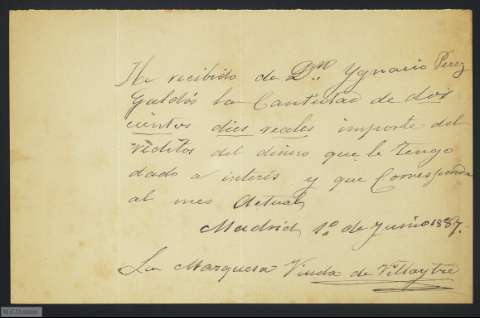 He recibido de Dn. Ygnacio Perez
Galdós la Cantidad de dos
cientos dies reales importe del
réditos del dinero que le tengo
dado a interés y que Corresponde
al mes Actual,
Madrid 1º de Junio 1887.
La Marquesa Viuda de Villaytre